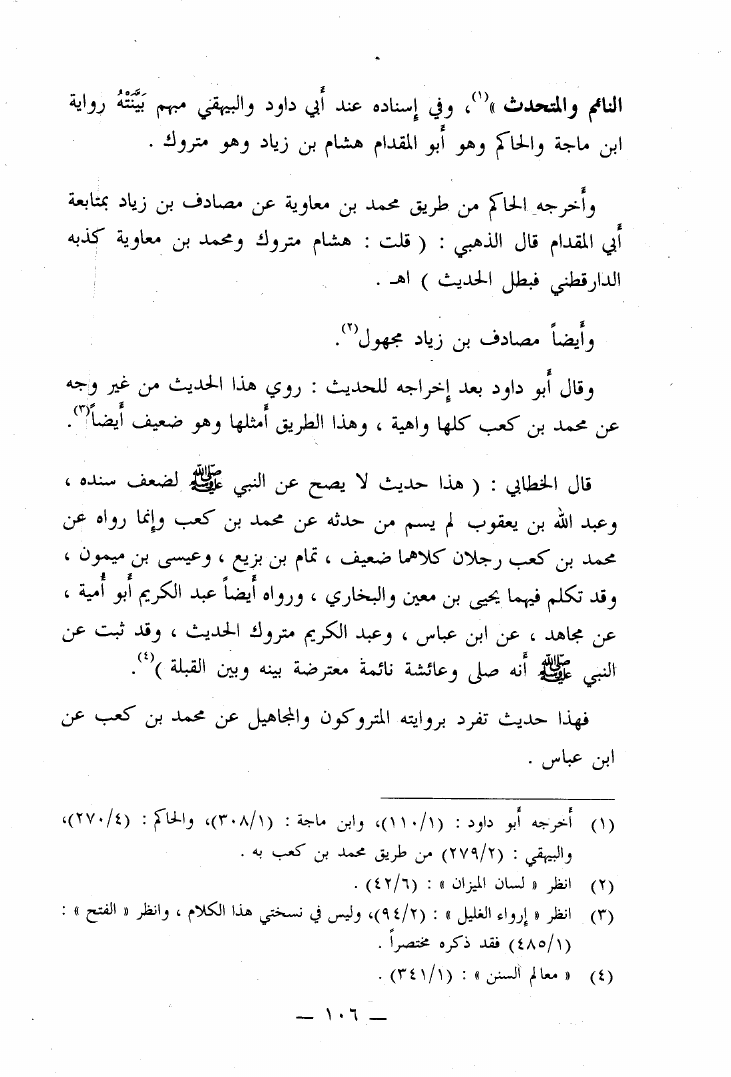 النائم والمتحدث »(١)، وفي إسناده عند أبي داود والبيهقي مبهم بَيَّنَتْهُ رواية
ابن ماجة والحاكم وهو أبو المقدام هشام بن زياد وهو متروك .
وأخرجه الحاكم من طريق محمد بن معاوية عن مصادف بن زياد بمتابعة
أبي المقدام قال الذهبي : ( قلت : هشام متروك ومحمد بن معاوية كذبه
الدارقطني فبطل الحديث ) اهـ .
وأيضاً مصادف بن زياد مجهول(٢).
وقال أبو داود بعد إخراجه للحديث : روي هذا الحديث من غير وجه
عن محمد بن كعب كلها واهية ، وهذا الطريق أمثلها وهو ضعيف أيضاً(٣).
قال الخطابي : ( هذا حديث لا يصح عن النبي ﷺ لضعف سنده ،
وعبد الله بن يعقوب لم يسم من حدثه عن محمد بن كعب وإنما رواه عن
محمد بن كعب رجلان كلاهما ضعيف ، تمام بن بزيع ، وعيسى بن ميمون ،
وقد تكلم فيهما يحيى بن معين والبخاري ، ورواه أيضاً عبد الكريم أبو أمية ،
عن مجاهد ، عن ابن عباس ، وعبد الكريم متروك الحديث ، وقد ثبت عن
النبي ﷺ أنه صلى وعائشة نائمة معترضة بينه وبين القبلة )(٤).
فهذا حديث تفرد بروايته المتروكون والمجاهيل عن محمد بن كعب عن
ابن عباس .
(١) أخرجه أبو داود : (١١٠/١)، وابن ماجة : (٣٠٨/١)، والحاكم : (٢٧٠/٤)،
والبيهقي : (٢٧٩/٢) من طريق محمد بن كعب به .
(٢) انظر « لسان الميزان » : (٤٢/٦) .
(٣) انظر « إرواء الغليل » : (٩٤/٢)، وليس في نسختي هذا الكلام ، وانظر « الفتح » :
(٤٨٥/١) فقد ذكره مختصراً .
(٤) « معالم السنن » : (٣٤١/١) .
— ١٠٦ —